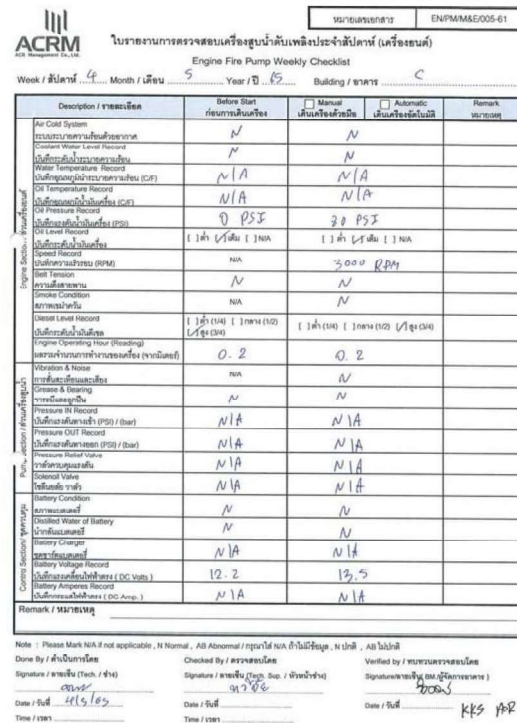 ACRM
ACR Management Co., Ltd.
หมายเลขเอกสาร EN/PM/M&E/005-61
ใบรายงานการตรวจสอบเครื่องสูบน้ำดับเพลิงประจำสัปดาห์ (เครื่องยนต์)
Engine Fire Pump Weekly Checklist
Week / สัปดาห์ 4 Month / เดือน 5 Year / ปี 65 Building / อาคาร C
Description / รายละเอียด Before Start ก่อนการเดินเครื่อง Manual เดินเครื่องด้วยมือ Automatic เดินเครื่องอัตโนมัติ Remark หมายเหตุ
Engine Section / ส่วนเครื่องยนต์
Air Cold System
ระบบระบายความร้อนด้วยอากาศ N N
Coolant Water Level Record
บันทึกระดับน้ำระบายความร้อน N N
Water Temperature Record
บันทึกอุณหภูมิน้ำระบายความร้อน (C/F) N/A N/A
Oil Temperature Record
บันทึกอุณหภูมิน้ำมันเครื่อง (C/F) N/A N/A
Oil Pressure Record
บันทึกแรงดันน้ำมันเครื่อง (PSI) 0 PSI 30 PSI
Oil Level Record
บันทึกระดับน้ำมันเครื่อง [ ] ต่ำ [✓] เต็ม [ ] N/A [ ] ต่ำ [✓] เต็ม [ ] N/A
Speed Record
บันทึกความเร็วรอบ (RPM) N/A 3000 RPM
Belt Tension
ความตึงสายพาน N N
Smoke Condition
สภาพเขม่าควัน N/A N
Diesel Level Record
บันทึกระดับน้ำมันดีเซล [ ] ต่ำ (1/4) [ ] กลาง (1/2) [✓] สูง (3/4) [ ] ต่ำ (1/4) [ ] กลาง (1/2) [✓] สูง (3/4)
Engine Operating Hour (Reading)
ผลรวมจำนวนการทำงานของเครื่อง (จากมิเตอร์) 0.2 0.2
Vibration & Noise
การสั่นสะเทือนและเสียง N/A N
Grease & Bearing
จาระบีและลูกปืน N N
Pressure IN Record
บันทึกแรงดันทางเข้า (PSI) / (bar) N/A N/A
Pressure OUT Record
บันทึกแรงดันทางออก (PSI) / (bar) N/A N/A
Pressure Relief Valve
วาล์วควบคุมแรงดัน N/A N/A
Solenoil Valve
โซลินอยล์ วาล์ว N/A N/A
Control Section/ ชุดควบคุม
Battery Condition
สภาพแบตเตอรี่ N N
Distilled Water of Battery
น้ำกลั่นแบตเตอรี่ N N
Battery Charger
ชุดชาร์ตแบตเตอรี่ N/A N/A
Battery Voltage Record
บันทึกแรงเคลื่อนไฟฟ้าตรง ( DC Volts ) 12.2 13.5
Battery Amperes Record
บันทึกกระแสไฟฟ้าตรง ( DC Amp. ) N/A N/A
Remark / หมายเหตุ
Note : Please Mark N/A if not applicable , N Normal , AB Abnormal / กรุณาใส่ N/A ถ้าไม่มีข้อมูล , N ปกติ , AB ไม่ปกติ
Done By / ดำเนินการโดย Checked By / ตรวจสอบโดย Verified by / ทบทวนตรวจสอบโดย
Signature / ลายเซ็น (Tech. / ช่าง) Signature / ลายเซ็น (Tech. Sup. / หัวหน้าช่าง) Signature/ลายเซ็น( BM./ผู้จัดการอาคาร )
Date / วันที่ 4/5/65 Date / วันที่ Date / วันที่
Time / เวลา Time / เวลา